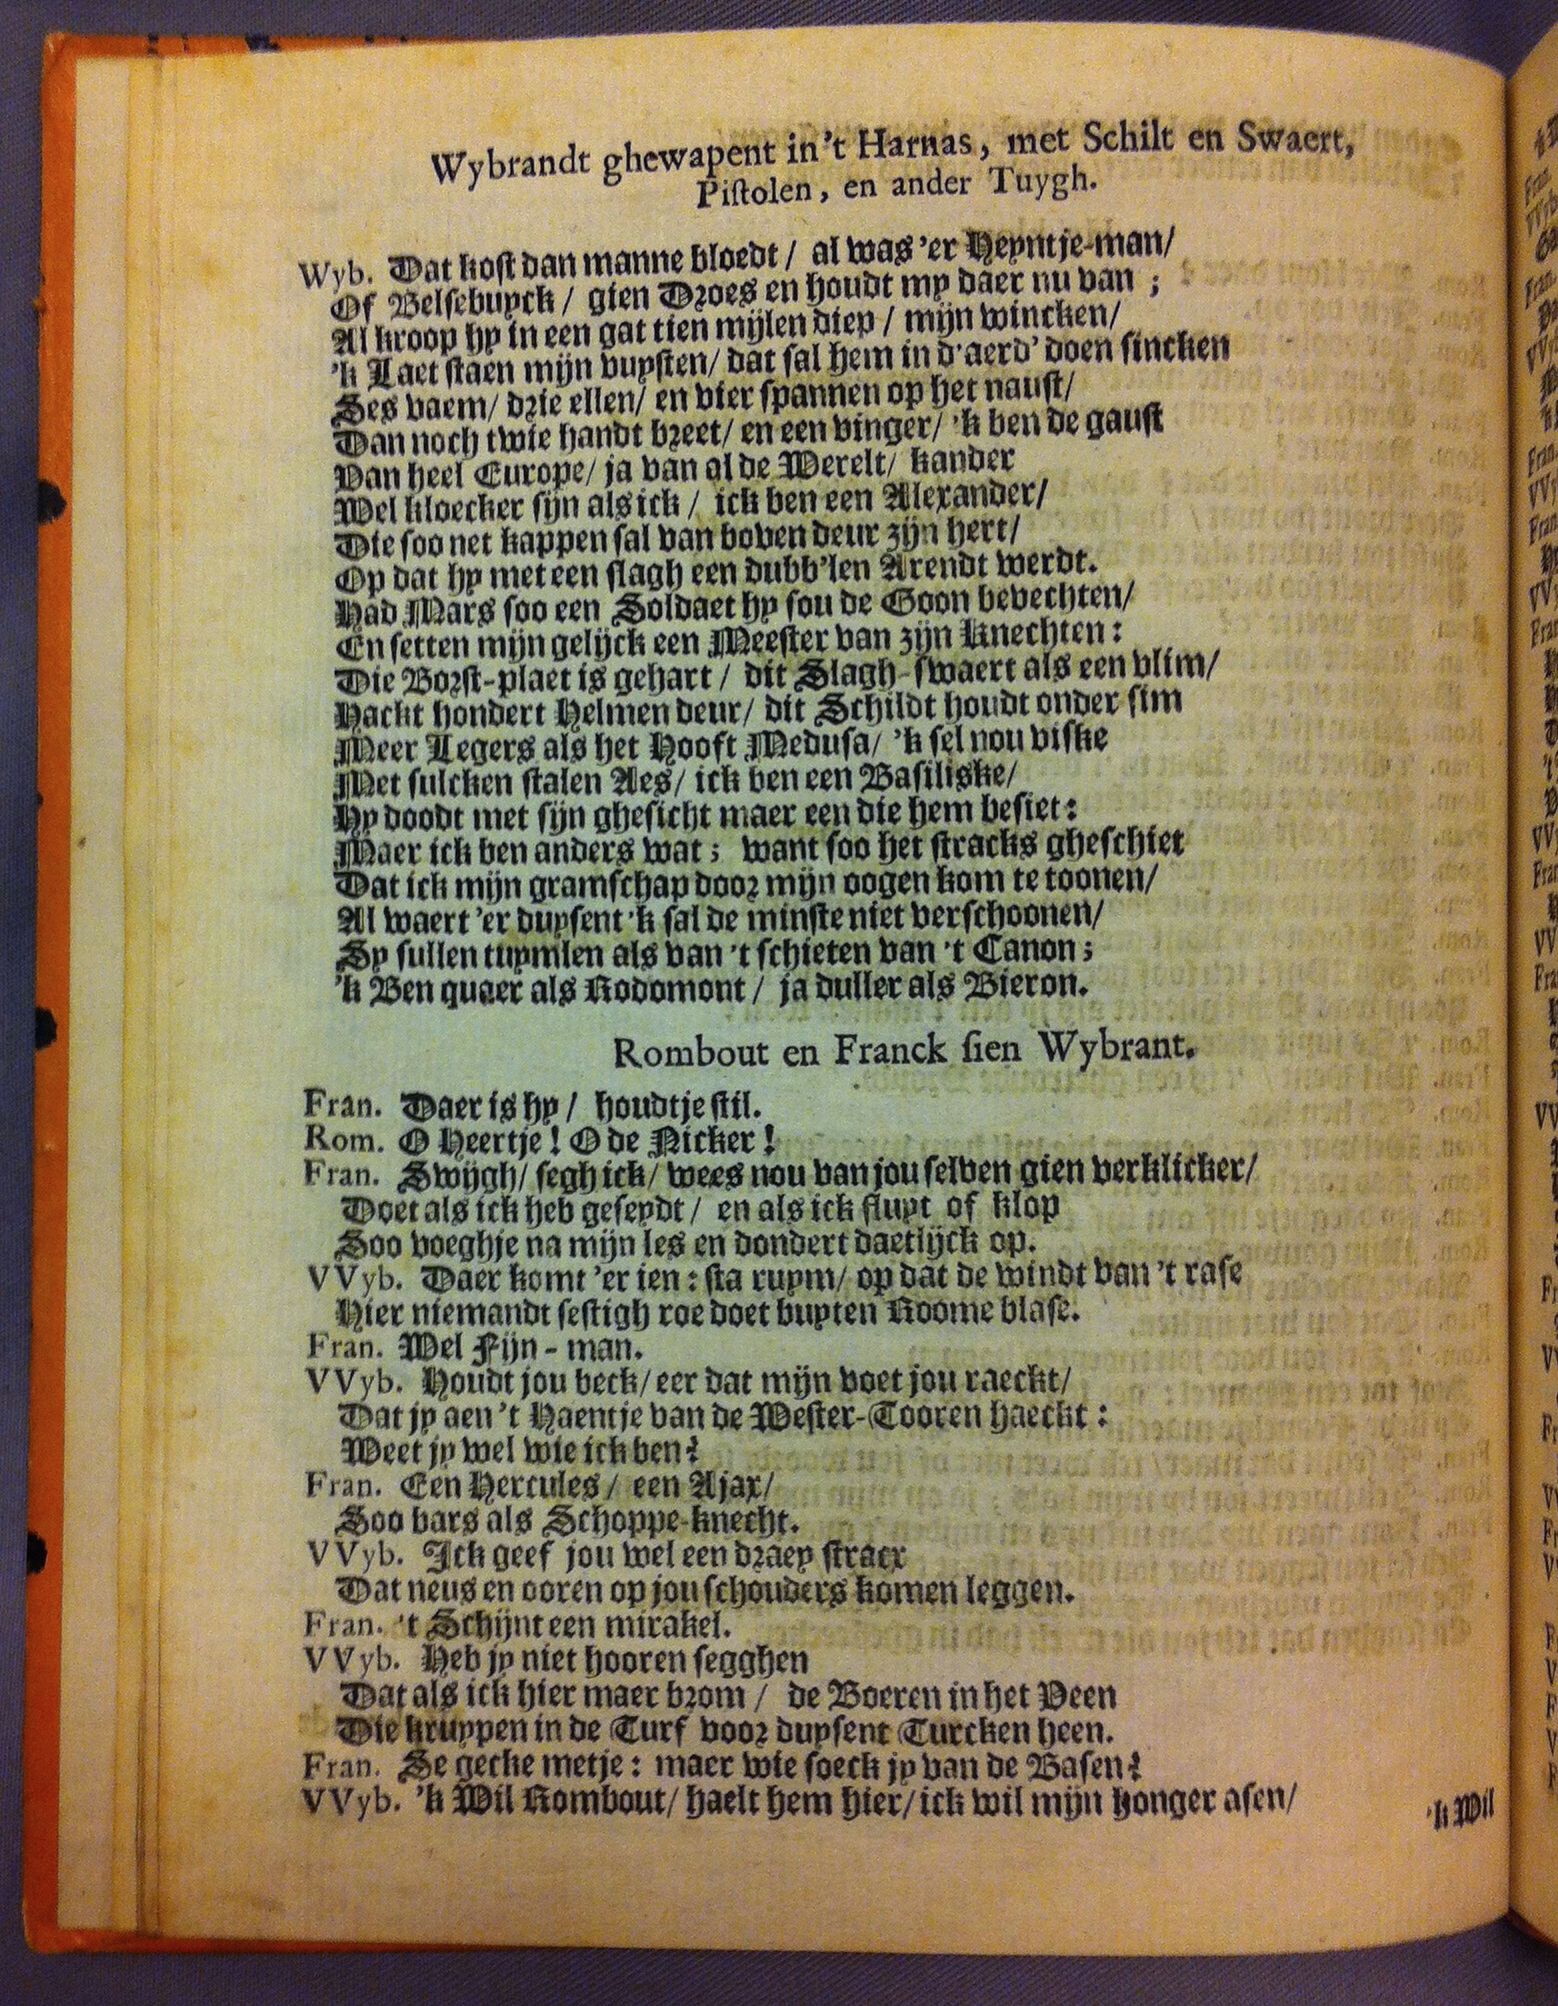 Wybrandt ghewapent in 't Harnas, met Schilt en Swaert,
Pistolen, en ander Tuygh.
Wyb. Dat kost dan manne bloedt / al was 'er Heyntje-man/
Of Belsebuyck / gien Droes en houdt my daer nu van ;
Al kroop hy in een gat tien mijlen diep / mijn wincken/
'k Laet staen mijn vuysten/ dat sal hem in d'aerd' doen sincken
Ses vaem/ drie ellen/ en vier spannen op het naust/
Dan noch twie handt breet/ en een vinger/ 'k ben de gaust
Van heel Europe/ ja van al de Werelt/ kander
Wel kloecker sijn als ick / ick ben een Alexander/
Die soo net kappen sal van boven deur zijn hert/
Op dat hy met een slagh een dubb'len Arendt werdt.
Had Mars soo een Soldaet hy sou de Goon bevechten/
En setten mijn gelijck een Meester van zijn knechten:
Die Borst-plaet is gehart / dit Slagh-swaert als een vlim/
Hackt hondert Helmen deur/ dit Schildt houdt onder sim
Meer Legers als het Hooft Medusa/ 'k sel nou viske
Met sulcken stalen Aes/ ick ben een Basiliske/
Hy doodt met sijn ghesicht maer een die hem besiet:
Maer ick ben anders wat; want soo het stracks gheschiet
Dat ick mijn gramschap door mijn oogen kom te toonen/
Al waert 'er duysent 'k sal de minste niet verschoonen/
Sy sullen tuymlen als van 't schieten van 't Canon;
'k Ben quaer als Rodomont / ja duller als Bieron.
Rombout en Franck sien Wybrant.
Fran. Daer is hy / houdtje stil.
Rom. O Heertje! O de Nicker!
Fran. Swijgh/ segh ick/ wees nou van jou selven gien verklicker/
Doet als ick heb geseydt / en als ick fluyt of klop
Soo voeghje na mijn les en dondert daetlijck op.
VVyb. Daer komt 'er ien: sta ruym/ op dat de windt van 't rase
Hier niemandt sestigh roe doet buyten Roome blase.
Fran. Wel Fijn-man.
VVyb. Houdt jou beck/ eer dat mijn voet jou raeckt/
Dat jy aen 't Haentje van de Wester-Tooren haeckt:
Weet jy wel wie ick ben?
Fran. Een Hercules / een Ajax/
Soo bars als Schoppe-knecht.
VVyb. Ick geef jou wel een draey stracx
Dat neus en ooren op jou schouders komen leggen.
Fran. 't Schijnt een mirakel.
VVyb. Heb jy niet hooren segghen
Dat als ick hier maer brom / de Boeren in het Veen
Die kruypen in de Turf voor duysent Turcken heen.
Fran. Se gecke metje: maer wie soeck jy van de Basen?
VVyb. 'k Wil Rombout/ haelt hem hier/ ick wil mijn honger asen/
'k Wil